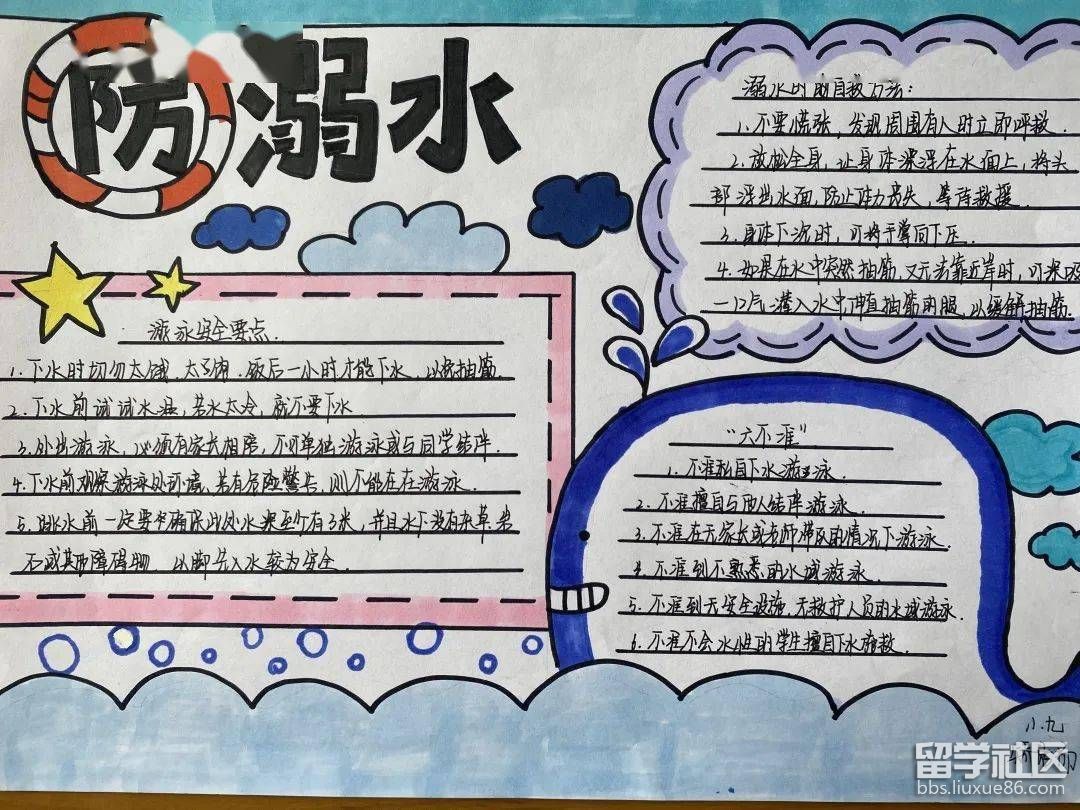 防溺水
游泳安全要点
1.下水时切勿太饿、太饱.饭后一小时才能下水,以免抽筋
2.下水前试试水温,若水太冷,就不要下水
3.外出游泳,必须有家长相陪,不可单独游泳或与同学结伴.
4.下水前观察游泳处环境,若有危险警告,则不能在在游泳.
5.跳水前一定要确保此处水深至少有3米,并且水下没有杂草岩
石或其他障碍物. 以脚先入水较为安全.
溺水时的自救方法:
1.不要慌张,发现周围有人时立即呼救.
2.放松全身,让身体漂浮在水面上,将头
部浮出水面,防止体力丧失,等待救援.
3.身体下沉时,可将手掌向下压.
4.如果在水中突然抽筋,又无法靠近岸时,可深吸
一口气潜入水中伸直抽筋的腿,以缓解抽筋.
"六不准"
1.不准私自下水游泳.
2.不准擅自与他人结伴游泳.
3.不准在无家长或老师带队的情况下游泳.
4.不准到不熟悉的水域游泳.
5.不准到无安全设施、无救护人员的水域游泳.
6.不准不会水性的学生擅自下水施救.
小九
留学社区
bbs.liuxue86.com